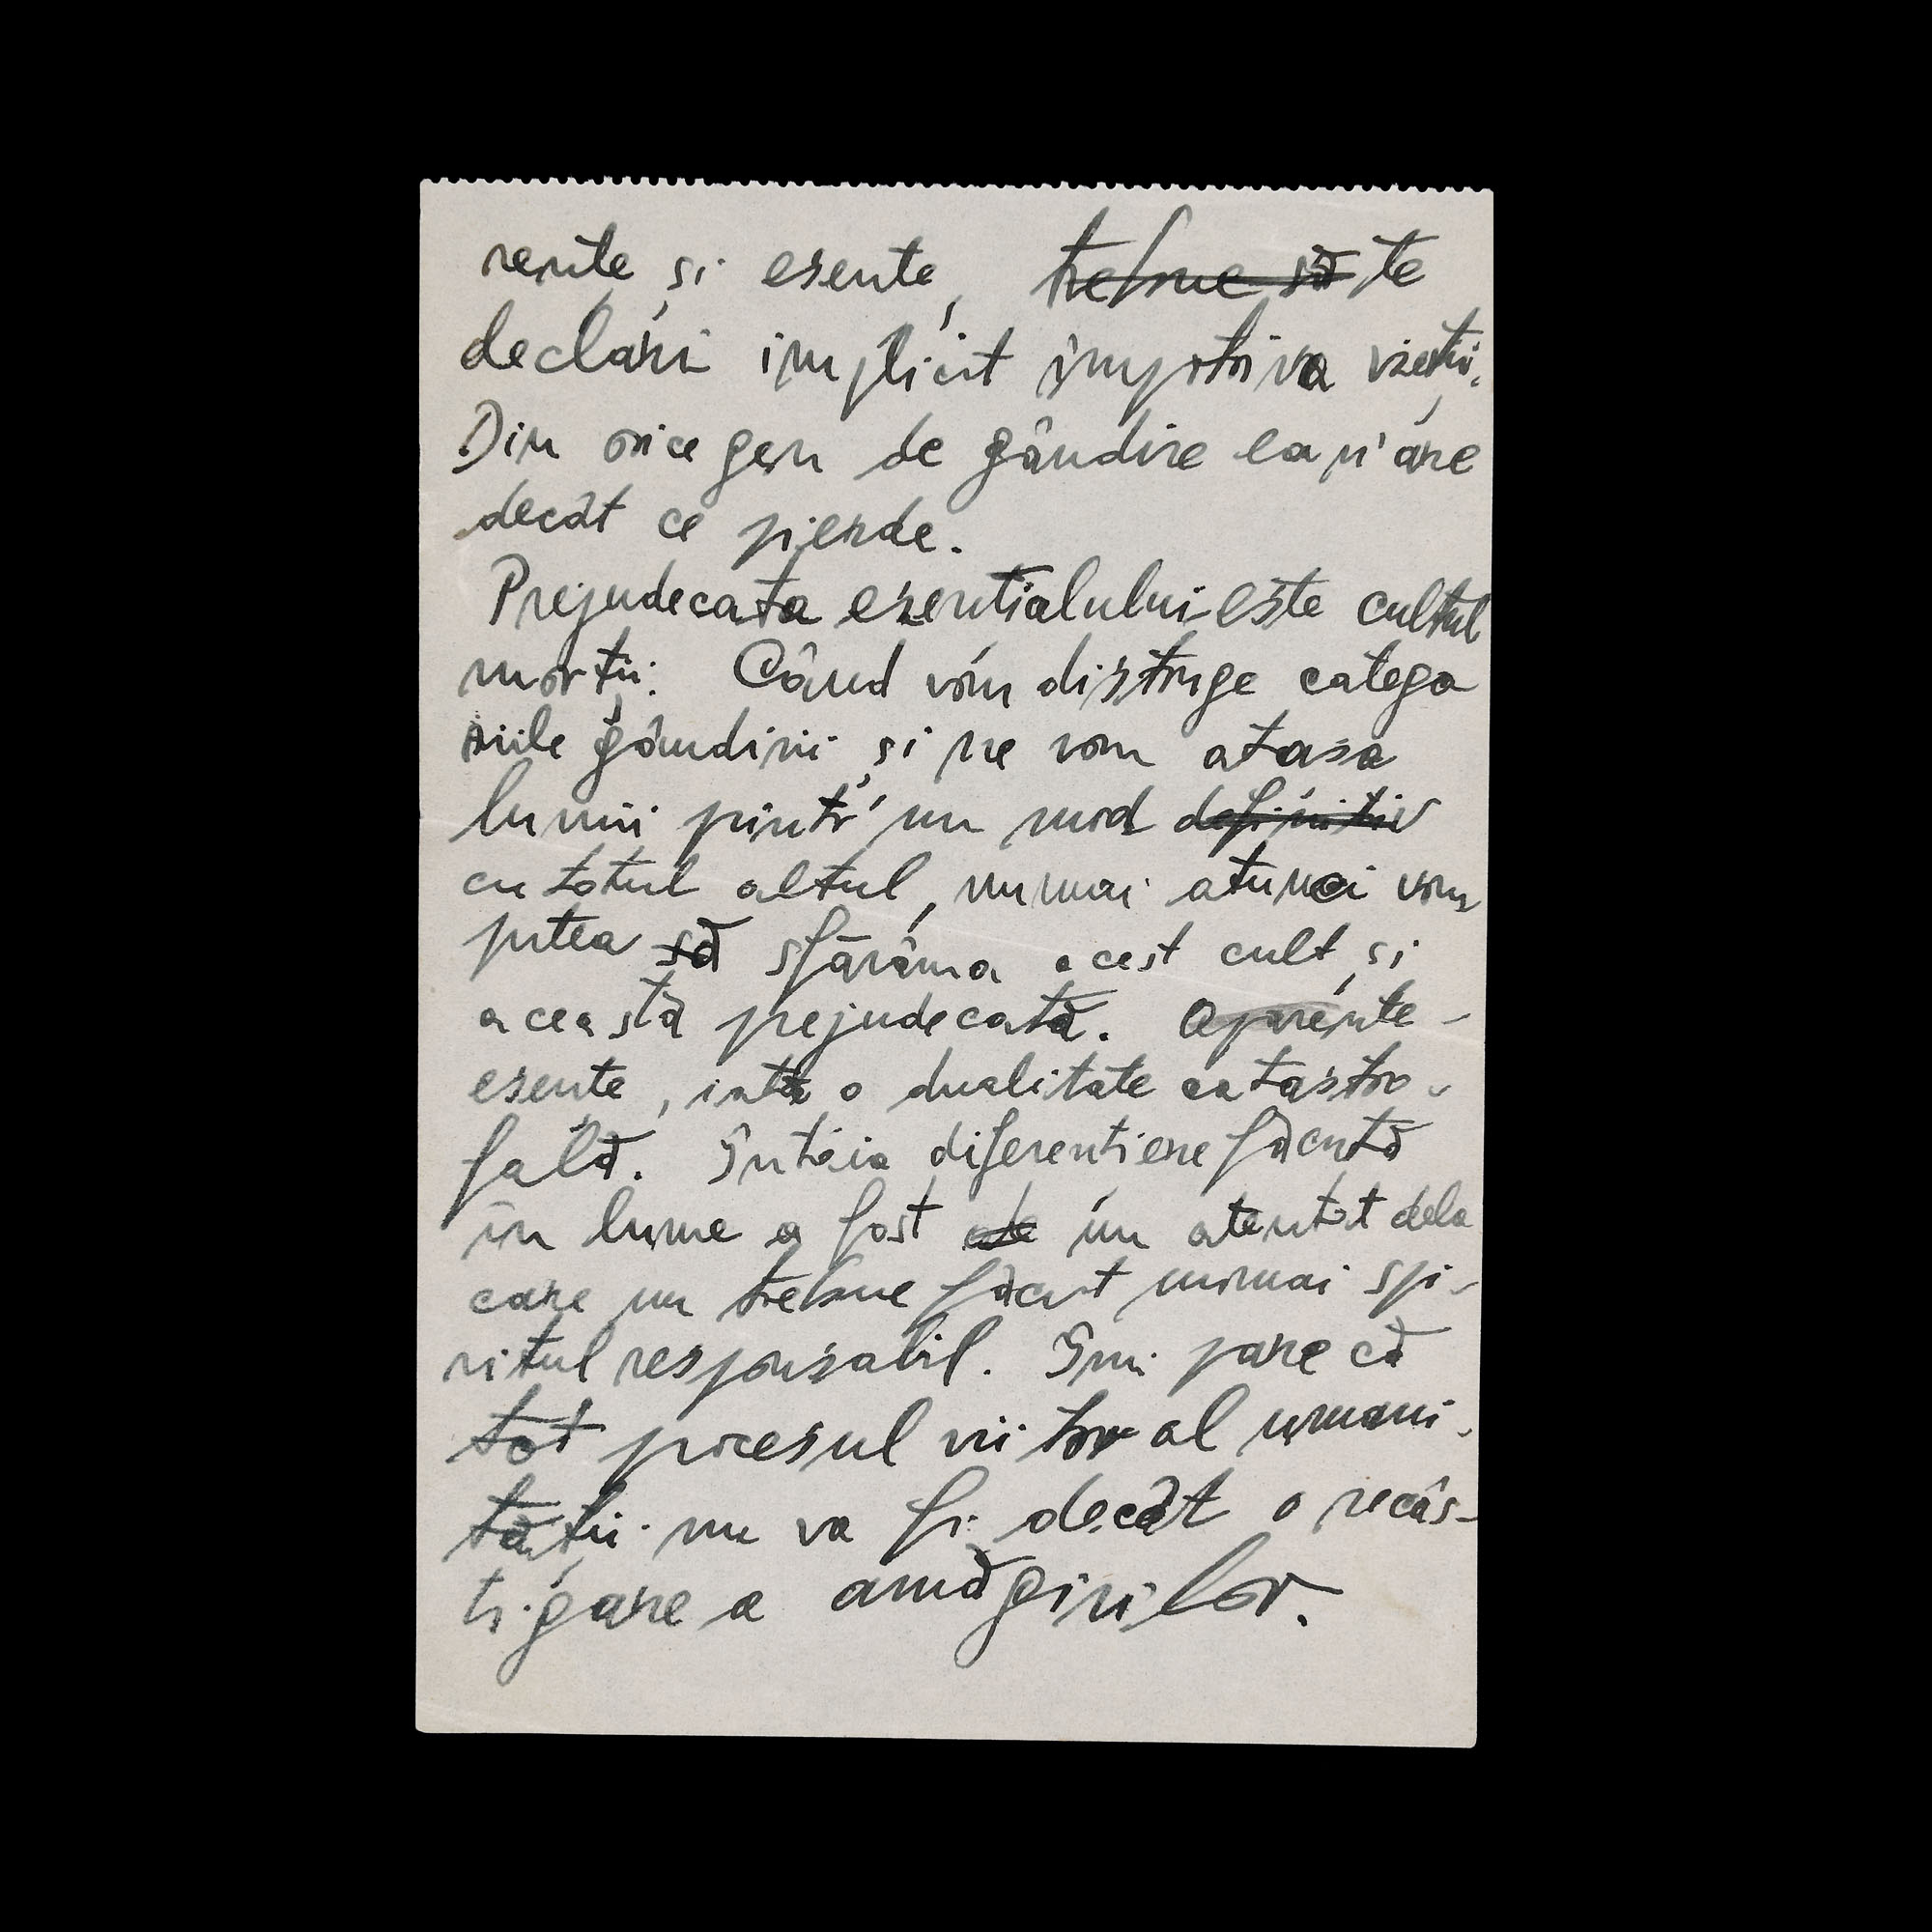 rente și esențe, trebue să te
declari implicit împotriva vieții.
Din orice gen de gândire ea n'are
decât ce pierde.
Prejudecata esentialului este cultul
morții. Când vom distruge catego
riile gândirii și ne vom atasa
lumii printr'un mod definitiv
cu totul altul, numai atunci vom
putea să sfărâma acest cult și
această prejudecată. Aparențe-
esențe, iată o dualitate catastro-
fală. Întâia diferentiere făcută
în lume a fost un atentat dela
care nu trebue făcut numai spi-
ritul responsabil. Îmi pare că
tot procesul viitor al umani-
tății nu va fi decât o recâș-
tigare a amăgirilor.